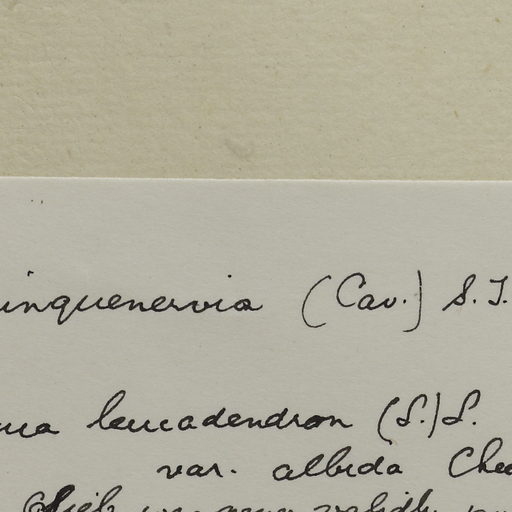 inquenervia (Cav.) S.T.
uca leucadendron (L.)L.
var. albida Chee
Sieb